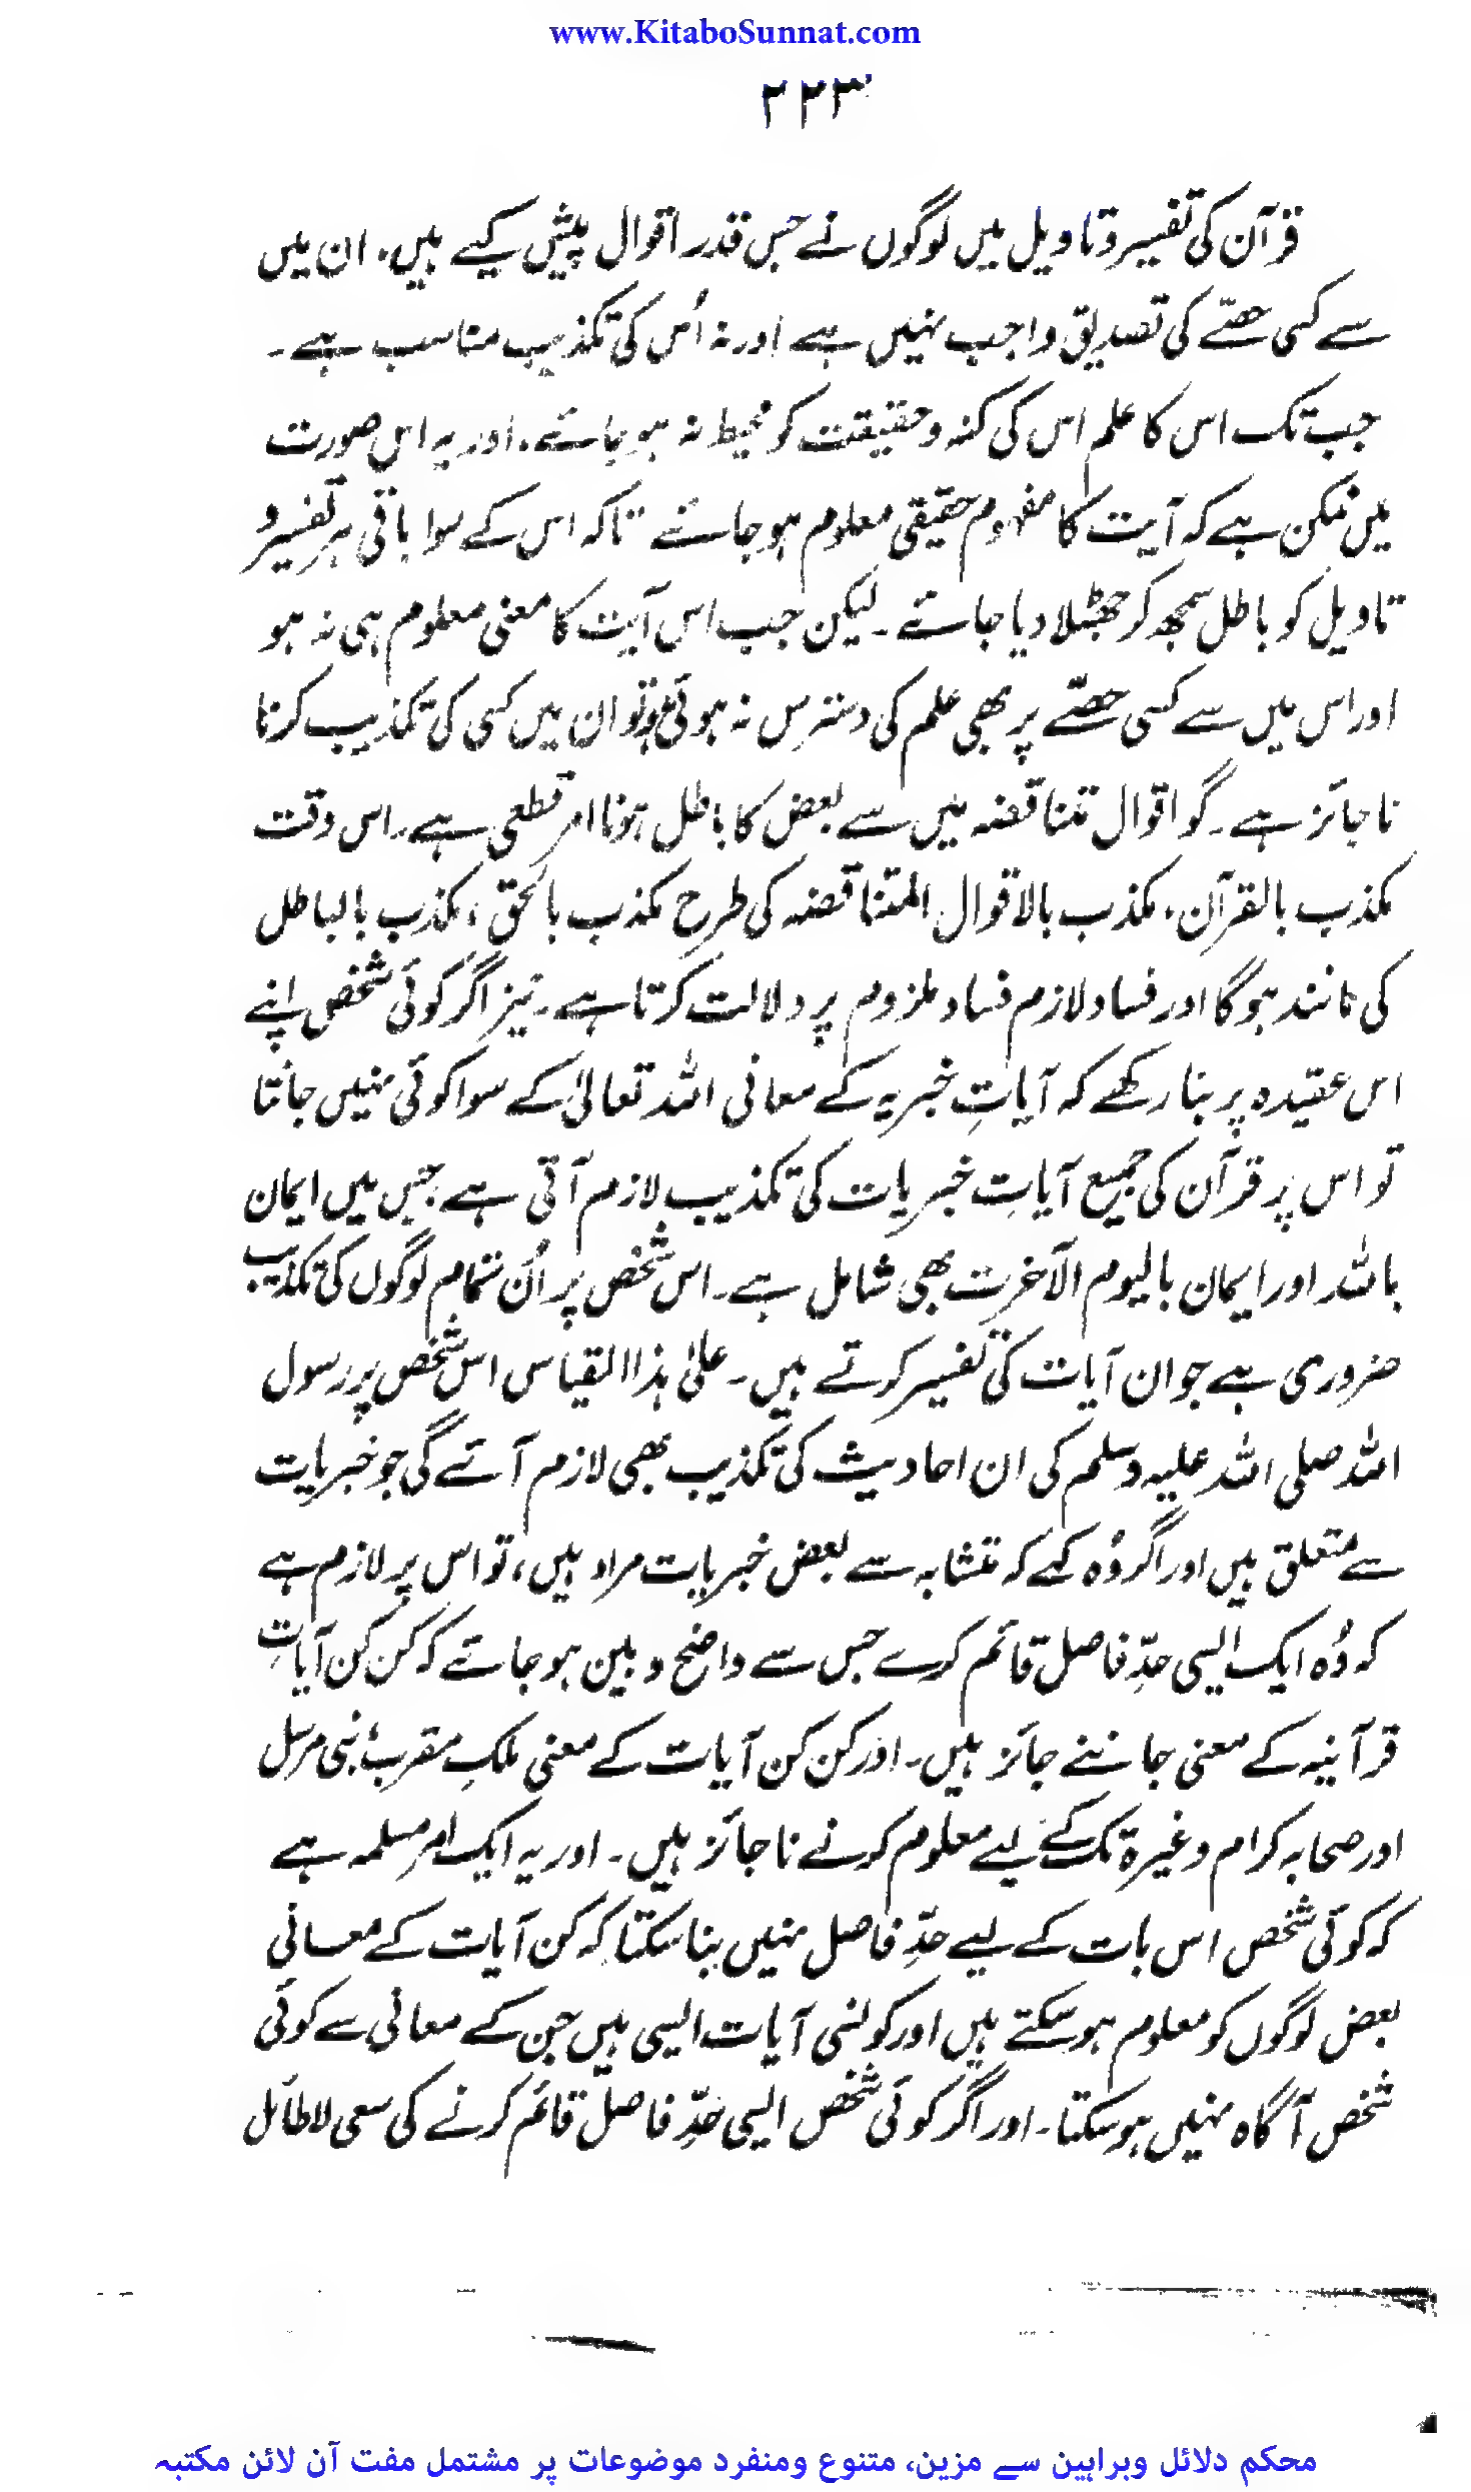 www.KitaboSunnat.com
۲۲۳
قرآن کی تفسیر و تاویل میں لوگوں نے جس قدر اقوال پیش کیے ہیں. ان میں
سے کسی حصّے کی تصدیق واجب نہیں ہے اور نہ اُس کی تکذیب مناسب ہے۔
جب تک اس کا علم اس کی کنہ و حقیقت کو محیط نہ ہو جائے، اور یہ اس صورت
میں ممکن ہے کہ آیت کا مفہوم حقیقی معلوم ہو جائے تاکہ اس کے سوا باقی ہر تفسیر و
تاویل کو باطل سمجھ کر جھٹلا دیا جائے۔ لیکن جب اس آیت کا معنی معلوم ہی نہ ہو
اور اس میں سے کسی حصّے پر بھی علم کی دسترس نہ ہوئی ہو تو ان میں کسی کی تکذیب کرنا
ناجائز ہے۔ گو اقوال متناقضہ میں سے بعض کا باطل ہونا امر قطعی ہے۔ اس وقت
مکذب بالقرآن، مکذب بالاقوال المتناقضہ کی طرح مکذب بالحق، مکذب بالباطل
کی مانند ہوگا اور فساد لازم فساد ملزوم پر دلالت کرتا ہے۔ نیز اگر کوئی شخص اپنے
اس عقیدہ پر بنا رکھے کہ آیاتِ خبریہ کے معانی اللہ تعالیٰ کے سوا کوئی نہیں جانتا
تو اس پر قرآن کی جمیع آیاتِ خبریات کی تکذیب لازم آتی ہے جس میں ایمان
باللہ اور ایمان بالیوم الآخرت بھی شامل ہے۔ اس شخص پر اُن تمام لوگوں کی تکذیب
ضروری ہے جو ان آیات کی تفسیر کرتے ہیں۔ علیٰ ہذا القیاس اس شخص پر رسول
اللہ صلی اللہ علیہ وسلم کی ان احادیث کی تکذیب بھی لازم آئے گی جو خبریات
سے متعلق ہیں اور اگر وُہ کہے کہ متشابہ سے بعض خبریات مراد ہیں، تو اس پر لازم ہے
کہ وُہ ایک ایسی حدِّ فاصل قائم کرے جس سے واضح و بین ہو جائے کہ کن کن آیاتِ
قرآنیہ کے معنی جاننے جائز ہیں۔ اور کن کن آیات کے معنی ملکِ مقرب، نبی مرسل
اور صحابہ کرام وغیرہ تک کے لیے معلوم کرنے ناجائز ہیں۔ اور یہ ایک امرِ مسلمہ ہے
کہ کوئی شخص اس بات کے لیے حدِّ فاصل نہیں بنا سکتا کہ کن آیات کے معانی
بعض لوگوں کو معلوم ہو سکتے ہیں اور کونسی آیات ایسی ہیں جن کے معانی سے کوئی
شخص آگاہ نہیں ہو سکتا۔ اور اگر کوئی شخص ایسی حدِّ فاصل قائم کرنے کی سعی لاطائل
محکم دلائل وبراہین سے مزین، متنوع ومنفرد موضوعات پر مشتمل مفت آن لائن مکتبہ